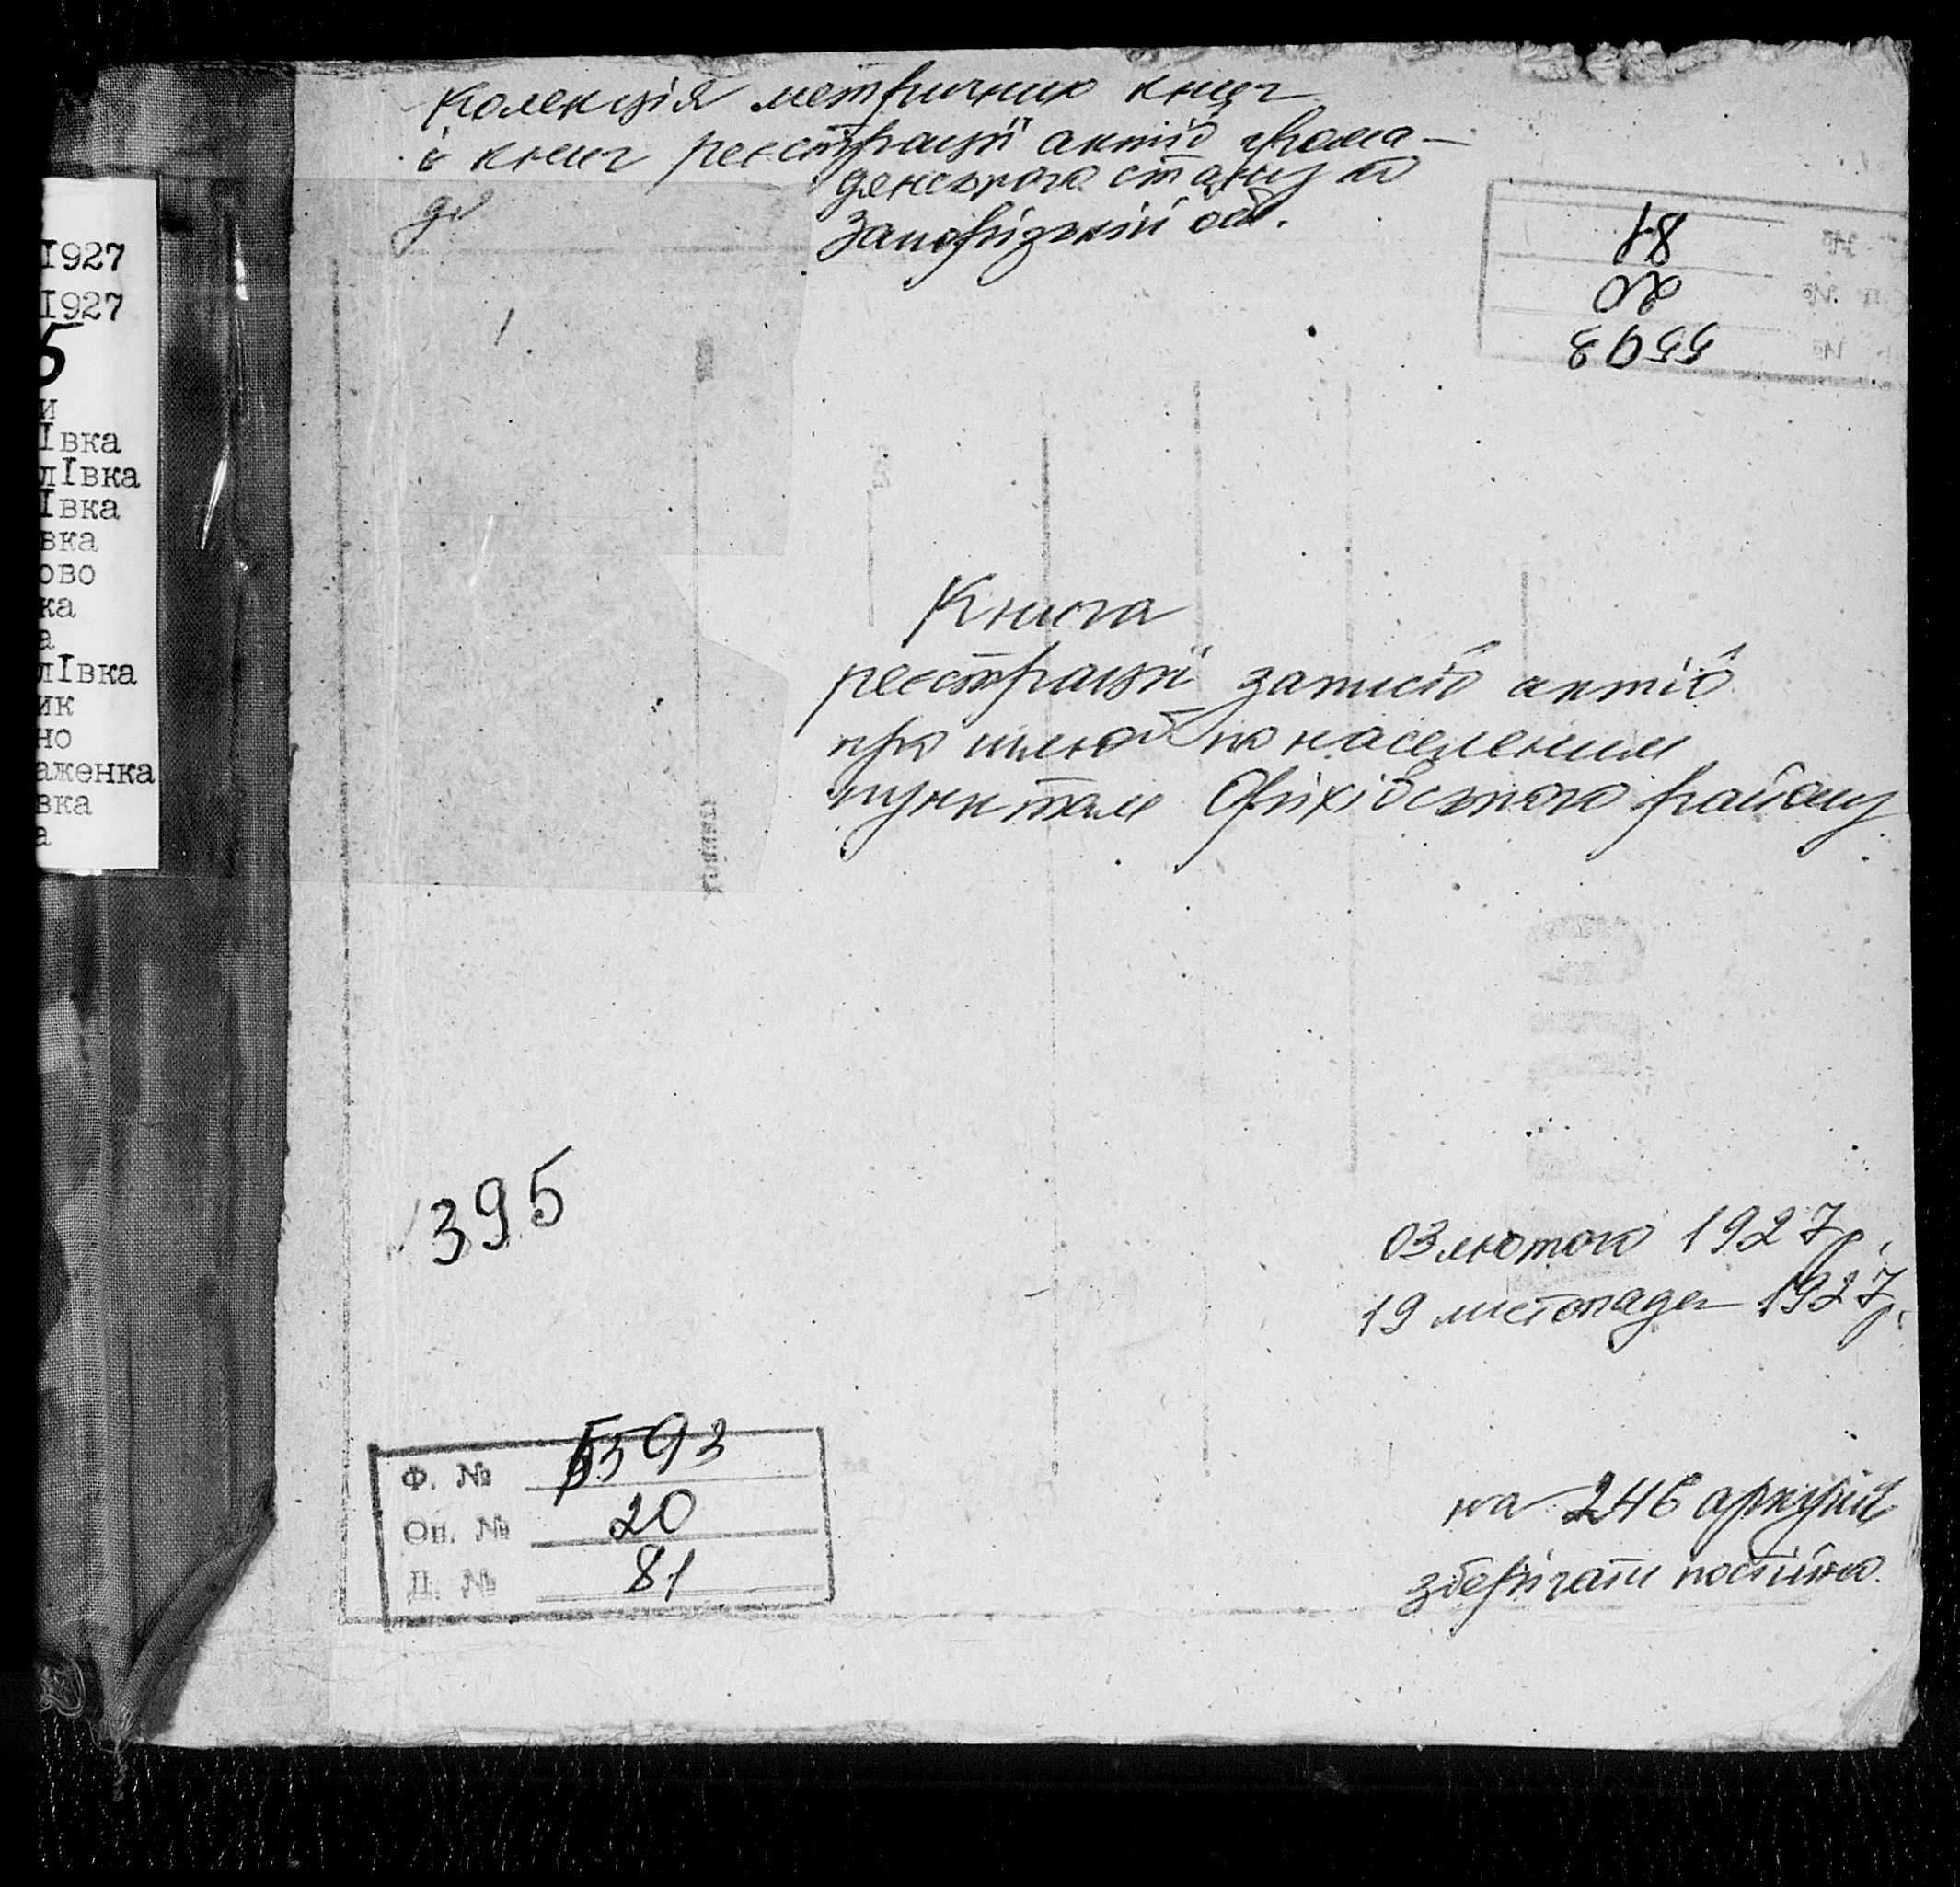 Колекція метричних книг
і книг реєстрації актів грома-
дянського стану по
Запорізькій обл.
81
20
5593
1927
1927
5
и
Івка
лІвка
Івка
вка
ово
ка
а
лІвка
ик
но
аженка
вка
а
Книга
реєстрації записів актів
про шлюб по населеним
пунктам Оріхівського району
395
03 лютого 1927 р.
19 листопада 1927 р.
Ф. № 5593
Оп. № 20
Д. № 81
на 246 аркушів
зберігати постійно.